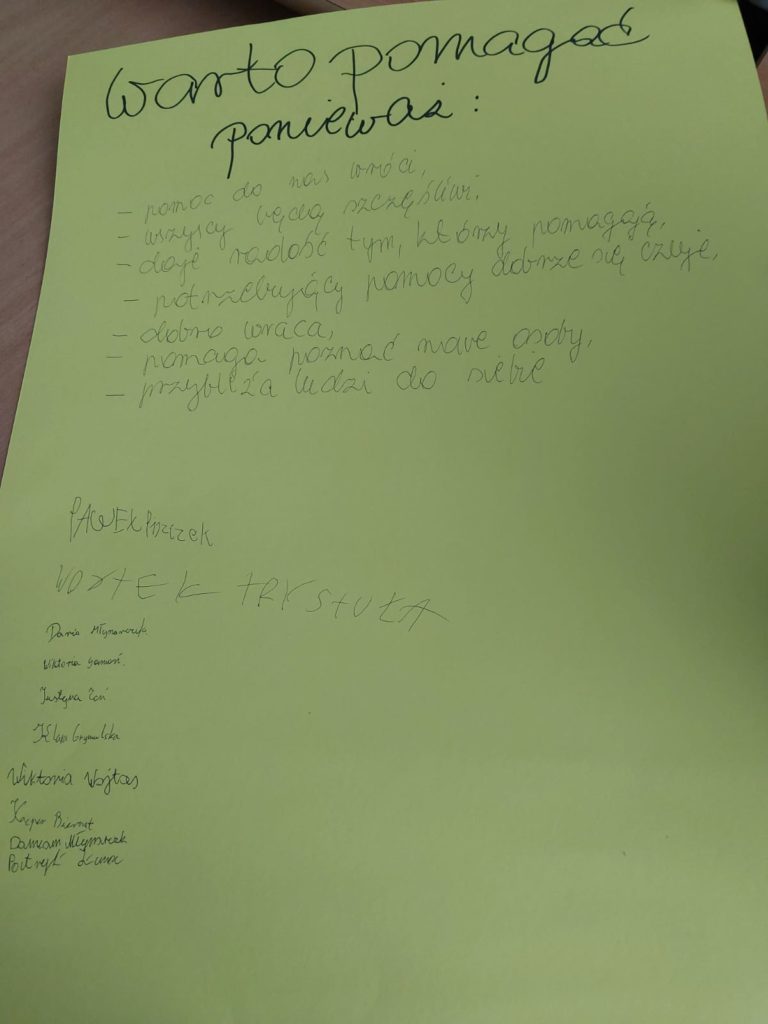 Warto pomagać
ponieważ :
- pomoc do nas wróci,
- wszyscy będą szczęśliwi,
- daje radość tym, którzy pomagają,
- potrzebujący pomocy dobrze się czuje,
- dobro wraca,
- pomaga poznać nowe osoby,
- przybliża ludzi do siebie
PAWEŁ
TRYSTUŁA
Daria Młynarczyk
Wiktoria
Justyna
Klara
Wiktoria Wojtas
Kacper Biernat
Damian Młynarczyk
Patryk